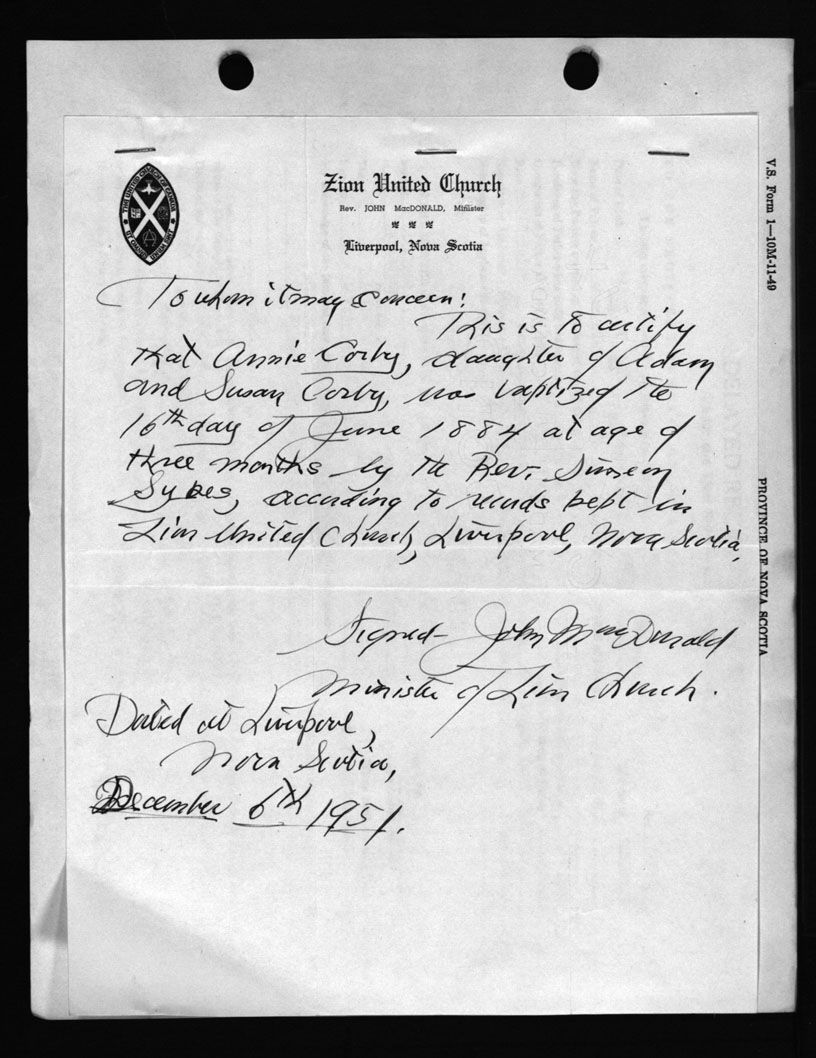 Zion United Church
Rev. JOHN MacDONALD, Minister
Liverpool, Nova Scotia
THE UNITED CHURCH OF CANADA
V.S. Form 1—10M-11-49
To whom it may concern!
This is to certify
that Annie Corby, daughter of Adam
and Susan Corby, was baptized the
16th day of June 1884 at age of
three months by the Rev. Simeon
Sykes, according to records kept in
Zion United Church, Liverpool, Nova Scotia,
PROVINCE OF NOVA SCOTIA
Signed - John MacDonald
Minister of Zion Church.
Dated at Liverpool,
Nova Scotia,
December 6th 1951.